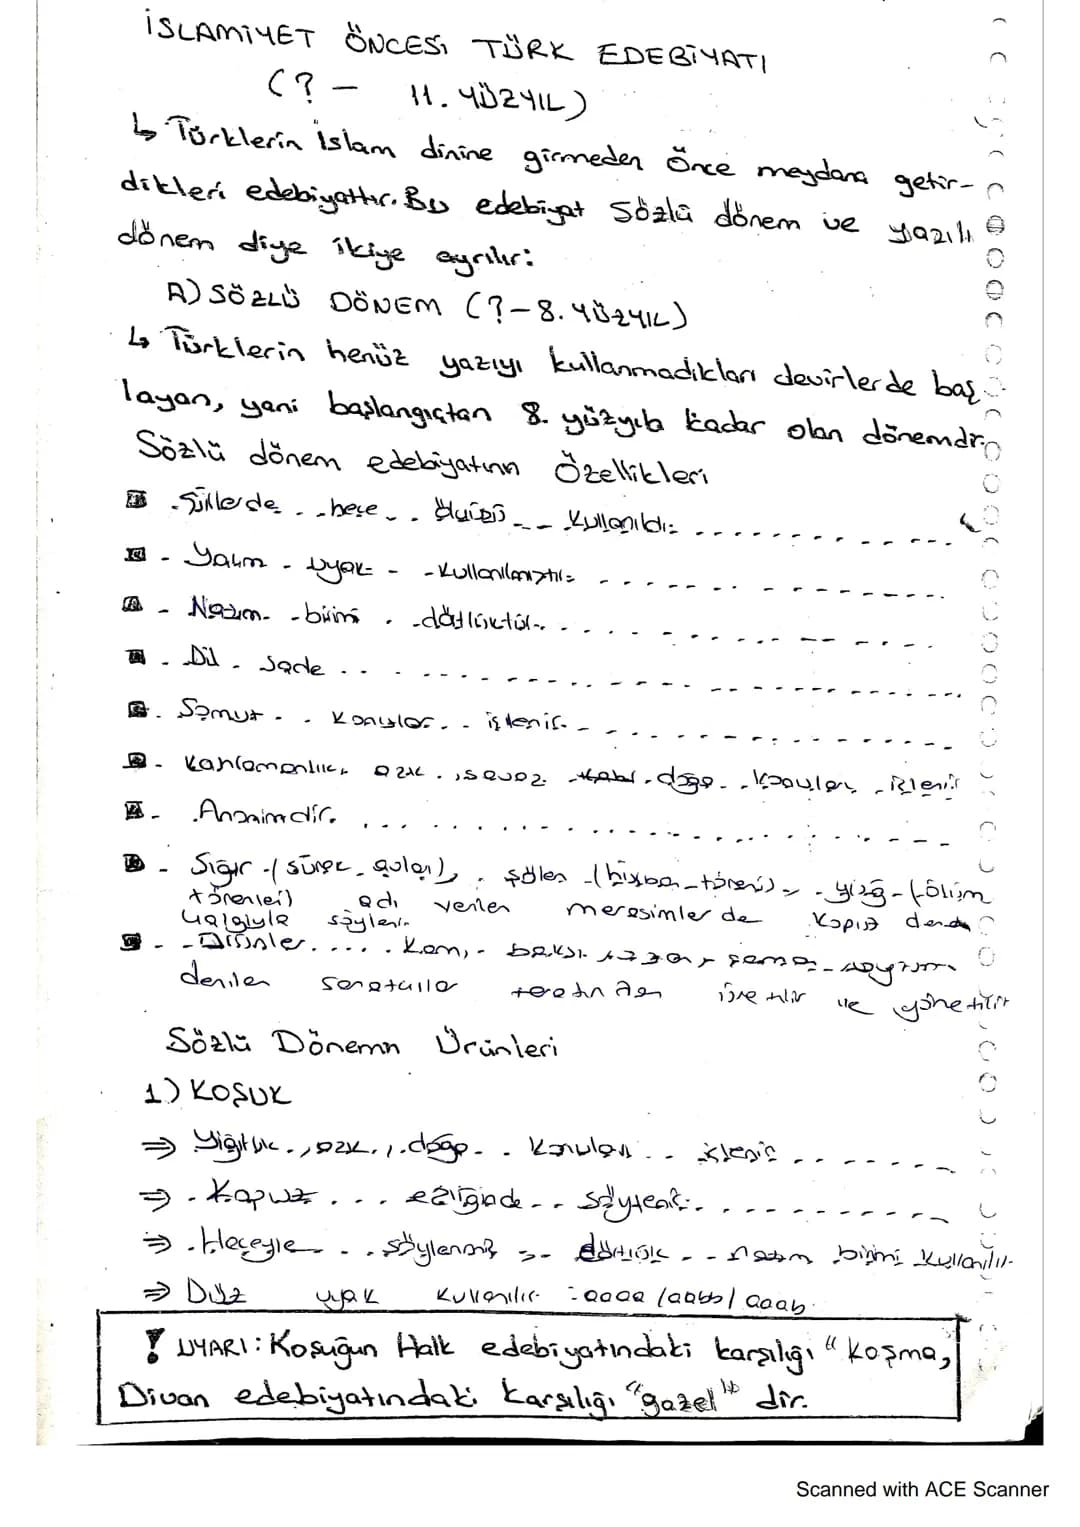 İSLAMİYET ÖNCESİ TÜRK EDEBİYATI
(? - 11. YÜZYIL)
↳ Türklerin İslam dinine girmeden önce meydana getir-
dikleri edebiyattır. Bu edebiyat sözlü dönem ve yazılı
dönem diye ikiye ayrılır:
A) SÖZLÜ DÖNEM (?-8. YÜZYIL)
↳ Türklerin henüz yazıyı kullanmadıkları devirlerde baş
layan, yani başlangıçtan 8. yüzyıla kadar olan dönemdir.
Sözlü dönem edebiyatının Özellikleri
Şiirlerde hece ölçüsü kullanıldı.
Yarım uyak kullanılmıştır.
Nazım birimi dörtlüktür.
Dil sade
Somut konular işlenir.
Kahramanlık, aşk, savaş doğa konuları işlenir
Anonimdir.
Sığır (sürek avları), şölen (kurban töreni), yuğ (ölüm
törenleri) adı verilen merasimlerde kopuz denen
çalgıyla söylenir.
Ürünler kam, baksı, ozan, şaman
denilen sanatçılar tarafından üretilir ve yönetilir
Sözlü Dönemin Ürünleri
1) KOŞUK
⇒ Yiğitlik, aşk, doğa konuları işlenir
⇒ Kopuz eşliğinde söylenir.
⇒ Heceyle söylenmiş dörtlük nazım birimi kullanılır.
⇒ Düz uyak kullanılır aaaa / aabb / aaab.
! UYARI: Koşuğun Halk edebiyatındaki karşılığı "koşma,
Divan edebiyatındaki karşılığı "gazel" dir.
Scanned with ACE Scanner